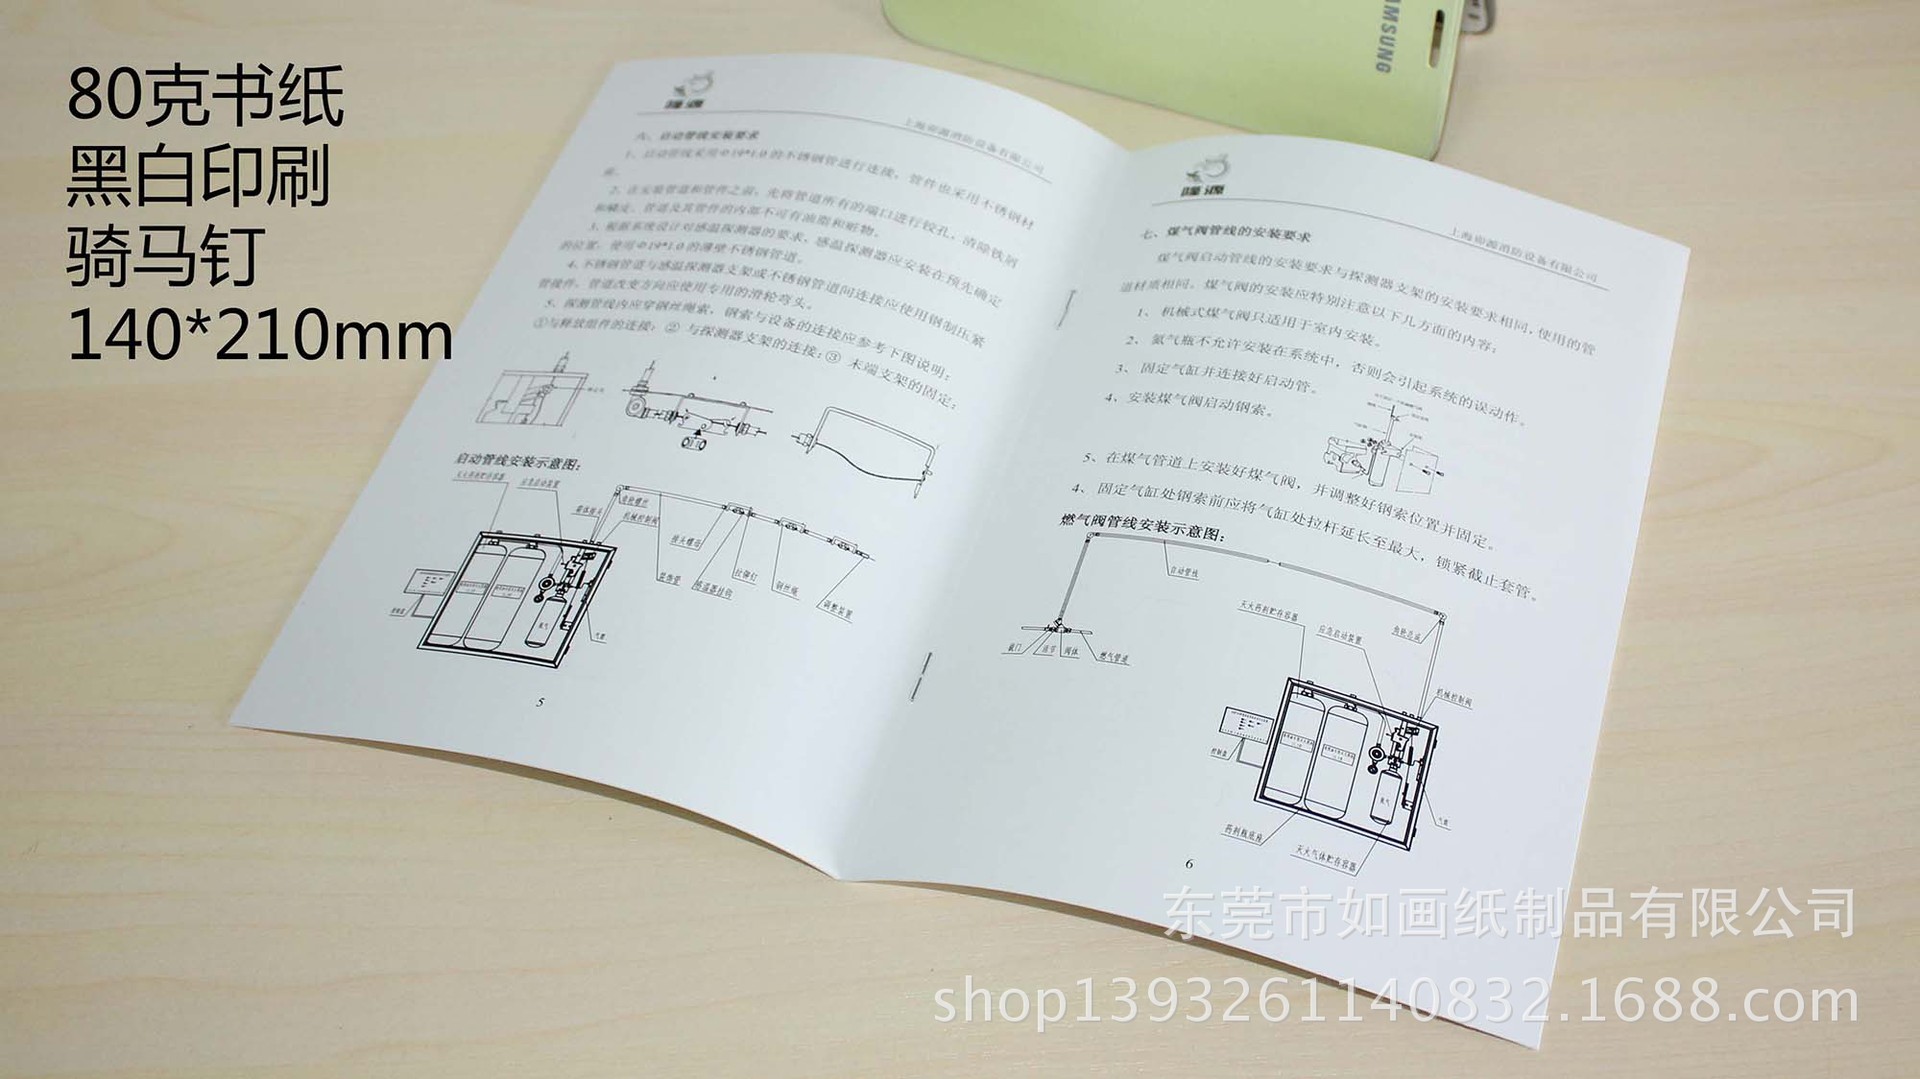 80克书纸
黑白印刷
骑马钉
140*210mm
SAMSUNG
六、启动管线安装要求
1、启动管线采用Φ19*1.0的不锈钢管进行连接，管件也采用不锈钢材
质。
2、在安装管道和管件之前，先将管道所有的端口进行铰孔，清除铁屑
和锈皮。管道及其管件的内部不可有油脂和脏物。
3、根据系统设计对感温探测器的要求，感温探测器应安装在预先确定
的位置。使用Φ19*1.0的薄壁不锈钢管道。
4、不锈钢管道与感温探测器支架或不锈钢管道间连接应使用钢制压紧
管接件，管道改变方向应使用专用的滑轮弯头。
5、探测管线内应穿钢丝绳索，钢索与设备的连接应参考下图说明：
①与释放组件的连接；② 与探测器支架的连接；③ 末端支架的固定：
启动管线安装示意图：
灭火药剂贮存容器
应急启动装置
箱体接头
角轮螺丝
机械控制阀
接头螺母
装饰管
感温器挂钩
拉铆钉
钢丝绳
调整装置
控制盒
氮气
气管
5
上海 源消防设备有限公司
七、煤气阀管线的安装要求
煤气阀启动管线的安装要求与探测器支架的安装要求相同，使用的管
道材质相同。煤气阀的安装应特别注意以下几方面的内容：
1、机械式煤气阀只适用于室内安装。
2、氮气瓶不允许安装在系统中，否则会引起系统的误动作。
3、固定气缸并连接好启动管。
4、安装煤气阀启动钢索。
5、在煤气管道上安装好煤气阀，并调整好钢索位置并固定。
4、固定气缸处钢索前应将气缸处拉杆延长至最大，锁紧截止套管。
燃气阀管线安装示意图：
启动管线
灭火药剂贮存容器
应急启动装置
角轮总成
阀门
法兰
阀体
燃气管道
机械控制阀
控制盒
氮气
气管
药剂瓶底座
灭火气体贮存容器
6
东莞市如画纸制品有限公司
shop1393261140832.1688.com